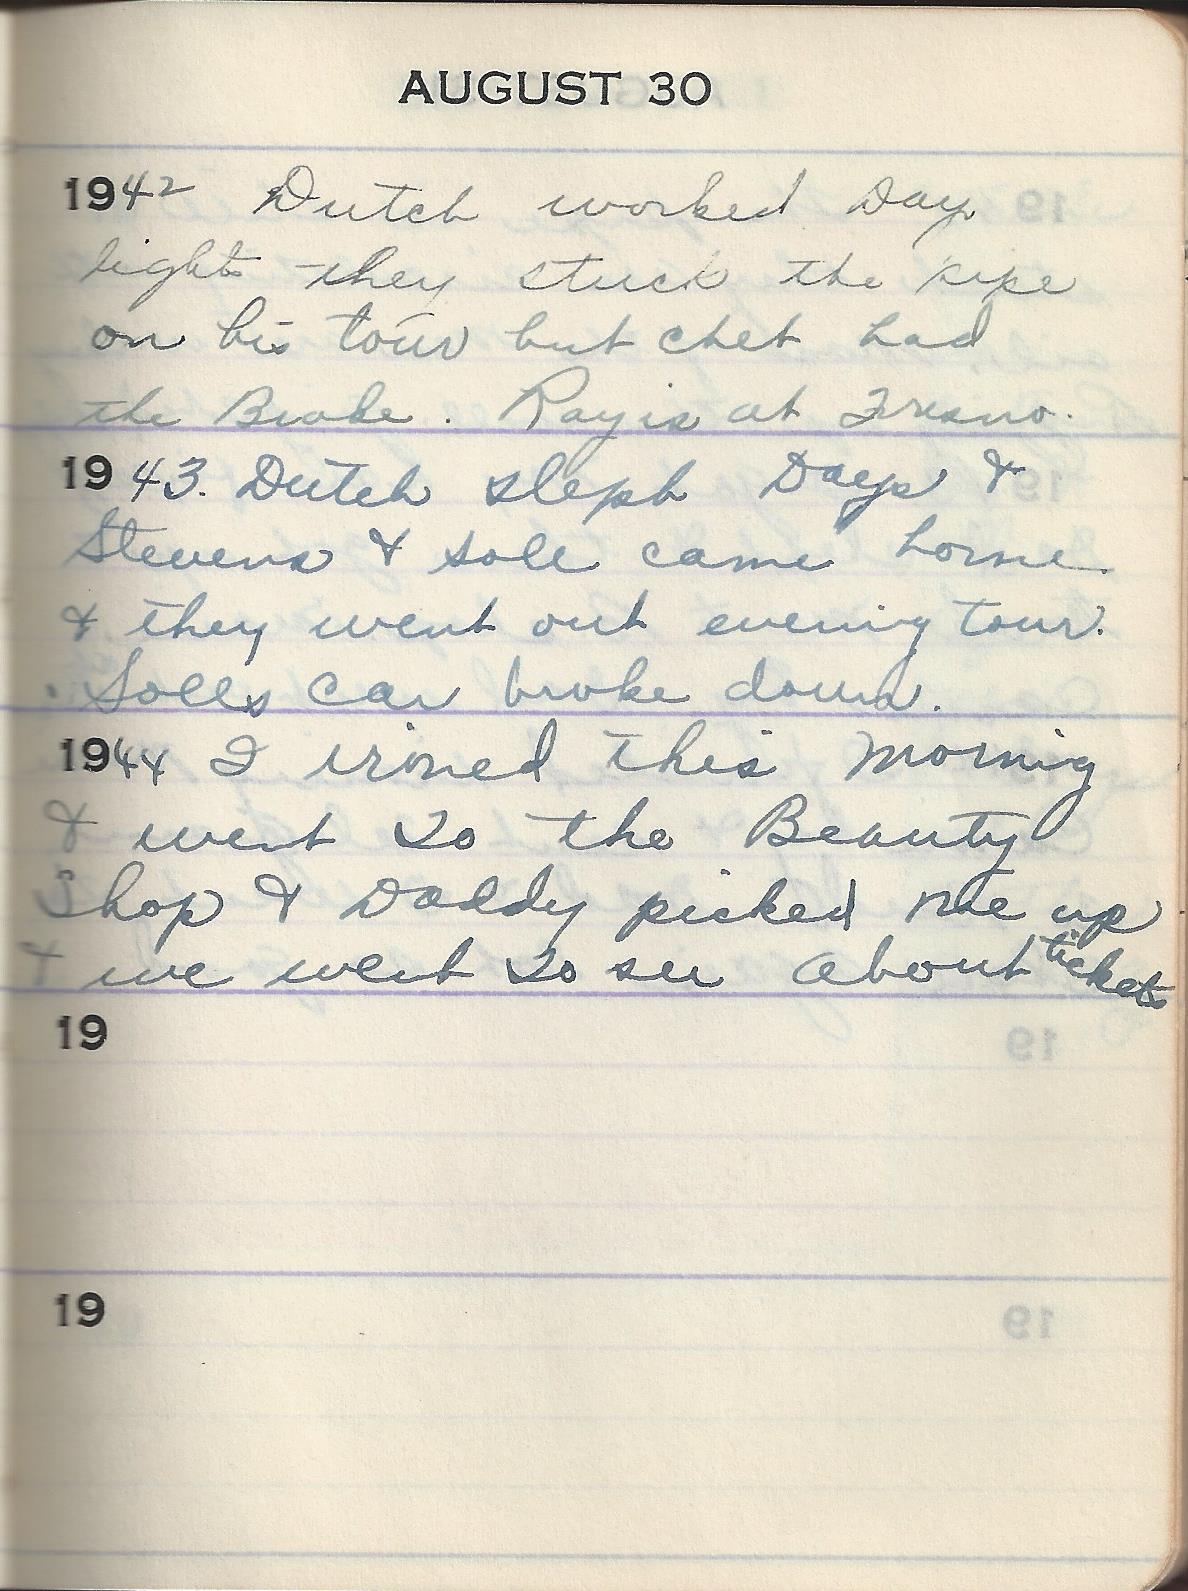 AUGUST 30
1942 Dutch worked Day
lights they stuck the pipe
on his tour but chet had
the Brake. Ray is at Fresno.
1943. Dutch sleph Days &
Stevens & Sole came home
& they went out evening tour.
Solls car broke down.
1944 I ironed this morning
& went to the Beauty
Shop & Daddy picked me up
& we went to see about tickets
19
19